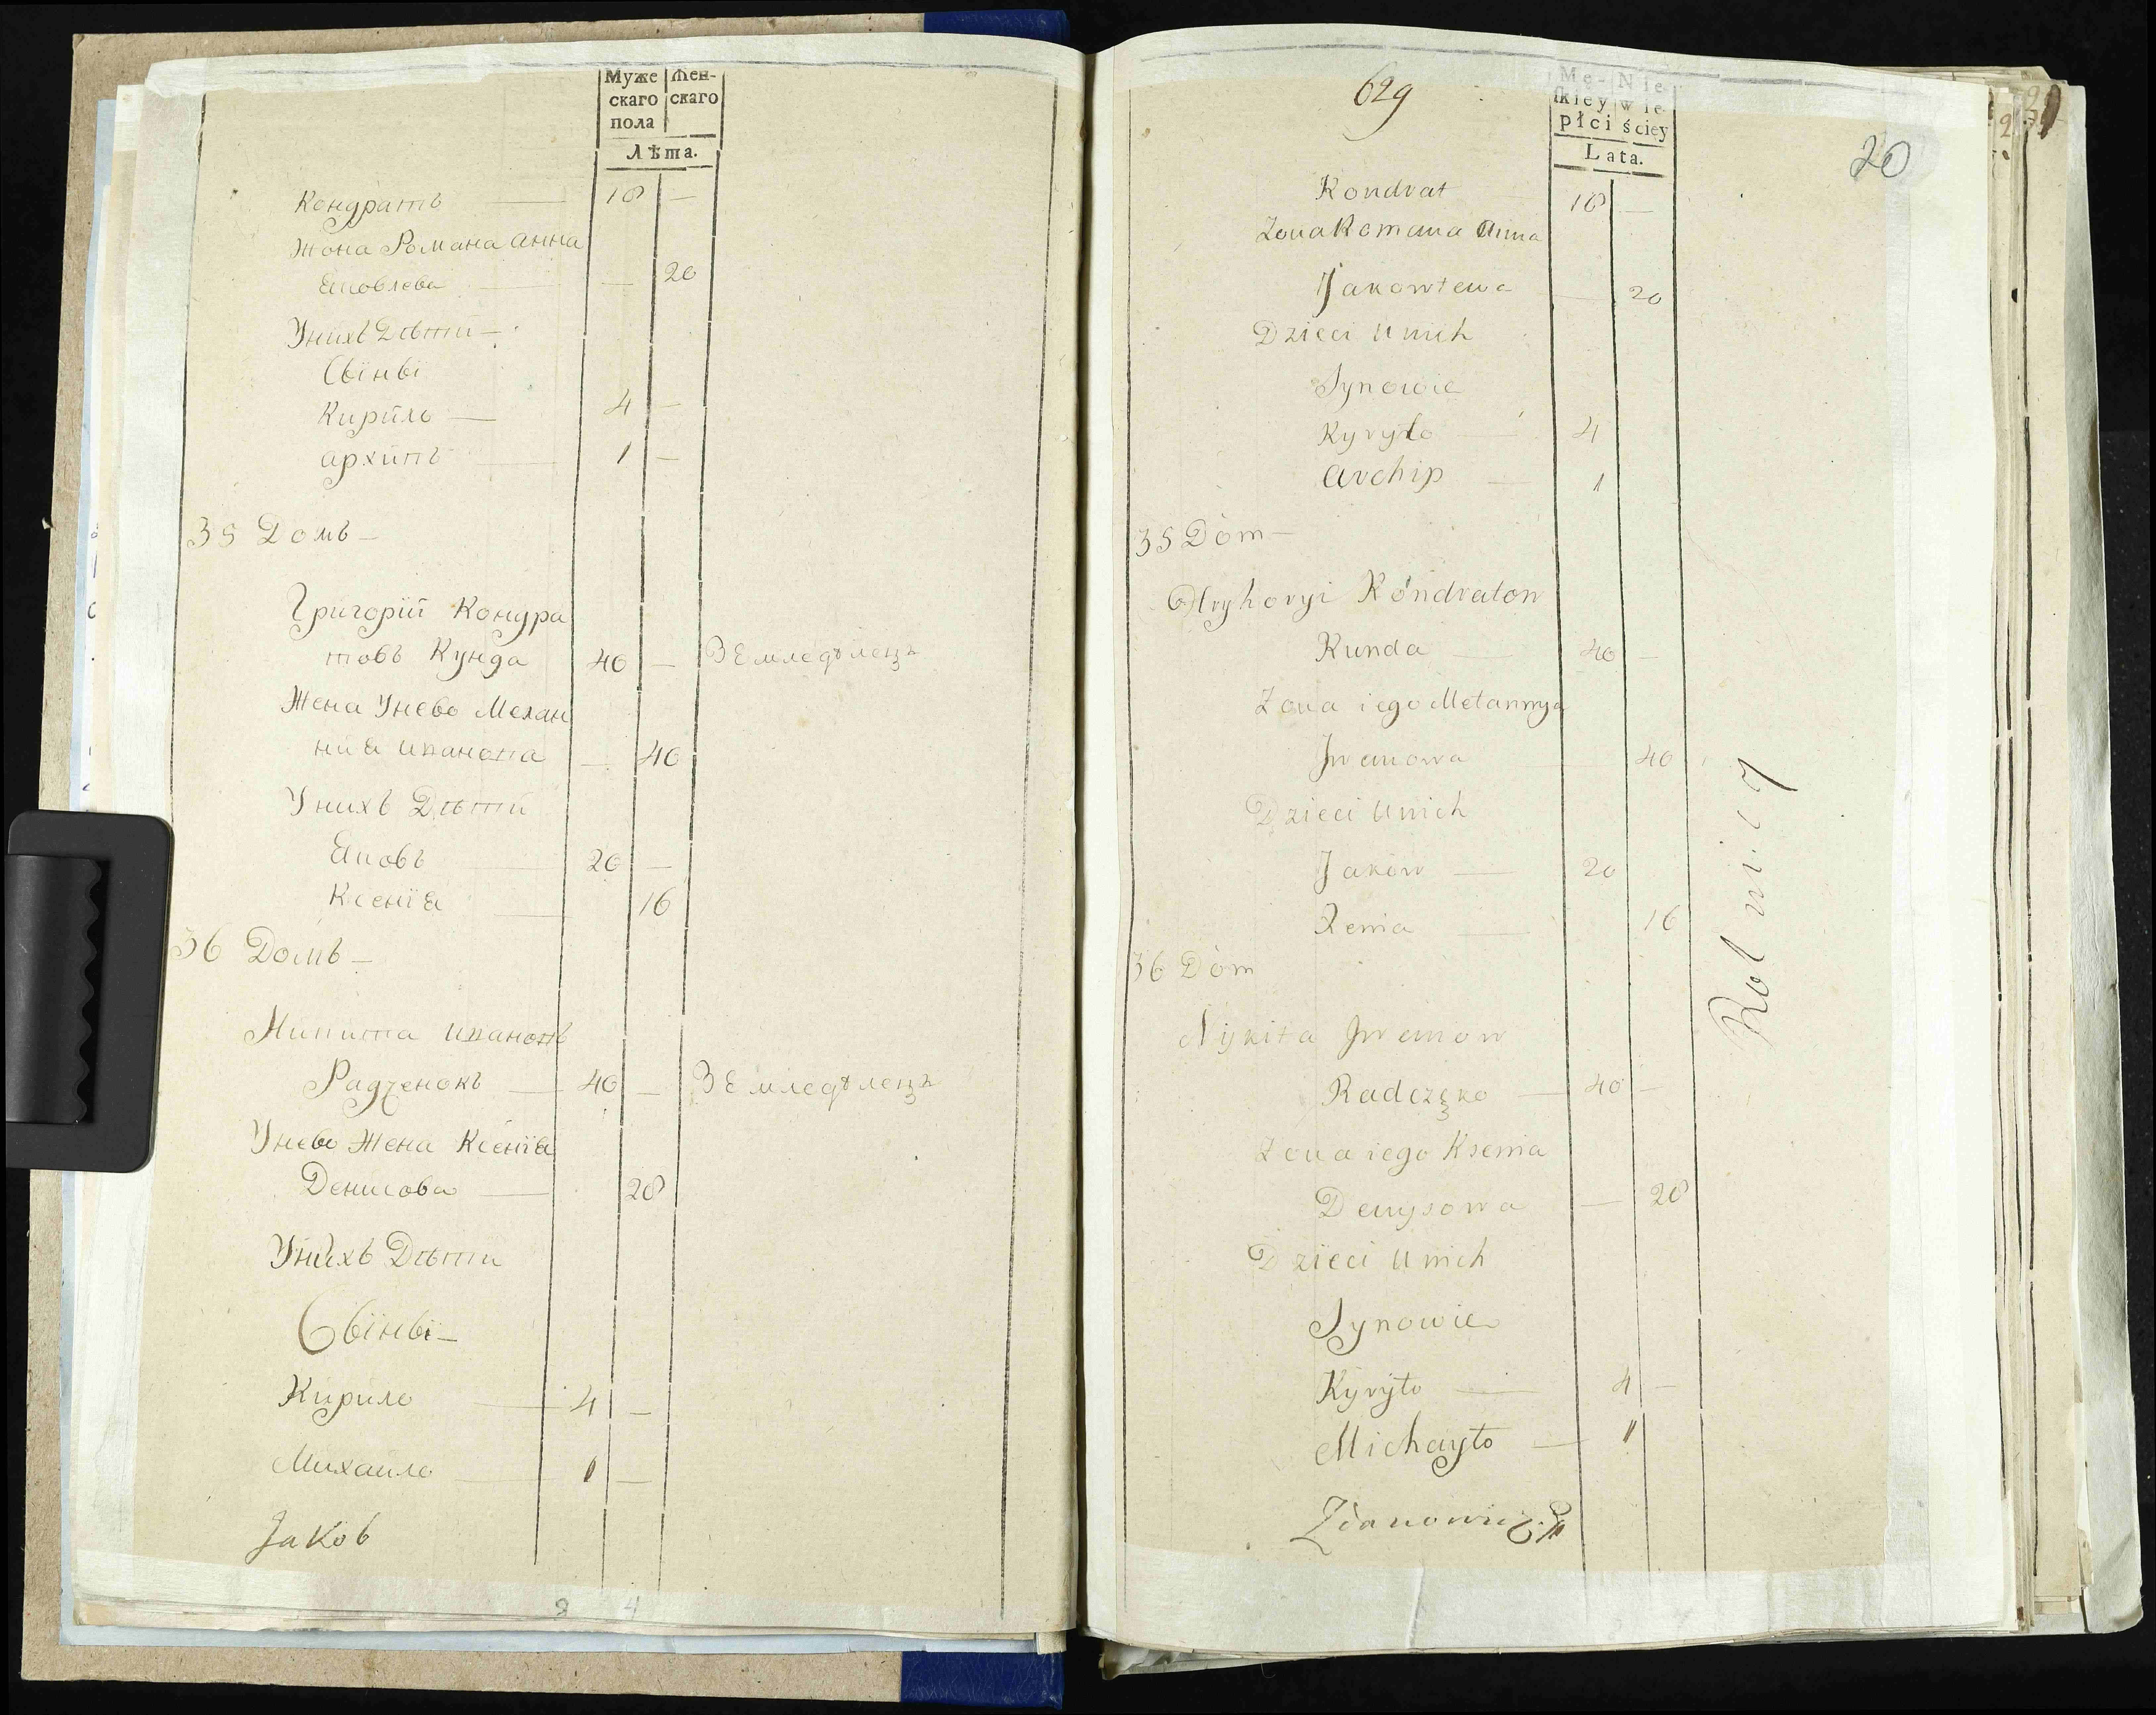 Муже Жен-
скаго скаго
пола
Лѣта.
Кондратъ — 18 —
Жона Романа анна
Яковлева — — 20
Унихъ Дѣти —
Сыны
Кирило — 4 —
архипъ — 1 —
35 Домъ —
Григорій Кондра
товъ Кунда 40 — Земледѣлецъ
Жена Унево Мелан
нія ивановa — 40
Унихъ Дѣти
Яковъ 20 —
Ксенія — 16
36 Домъ —
Никита ивановъ
Радченокъ — 40 — Земледѣлецъ
Унево Жена Ксенія
Денисова — 28
Унихъ Дѣти
Сыны —
Кирило — 4 —
Михаило — 1 —
Jaковъ
9 4
629
20
Me- Nie-
skiey wie-
płci ściey
Lata.
Kondrat 18 —
Zona Romana Anna
Jakowlewa — 20
Dzieci Unich
Synowie
Kyryło — 4
Archip — 1
35 Dóm —
Hryhoryi Kóndratow
Kunda — 40 —
Zona iego Mełannya
Jwanowa — 40
Dzieci Unich
Jaków — 20
Xenia — 16
36 Dóm
Nykita Jwanow
Radczęko — 40 —
Zona iego Ksenia
Denysowa — 28
Dzieci Unich
Synowie
Kyryło — 4 —
Michayło — 1
Zdanowicz
Rolnicy